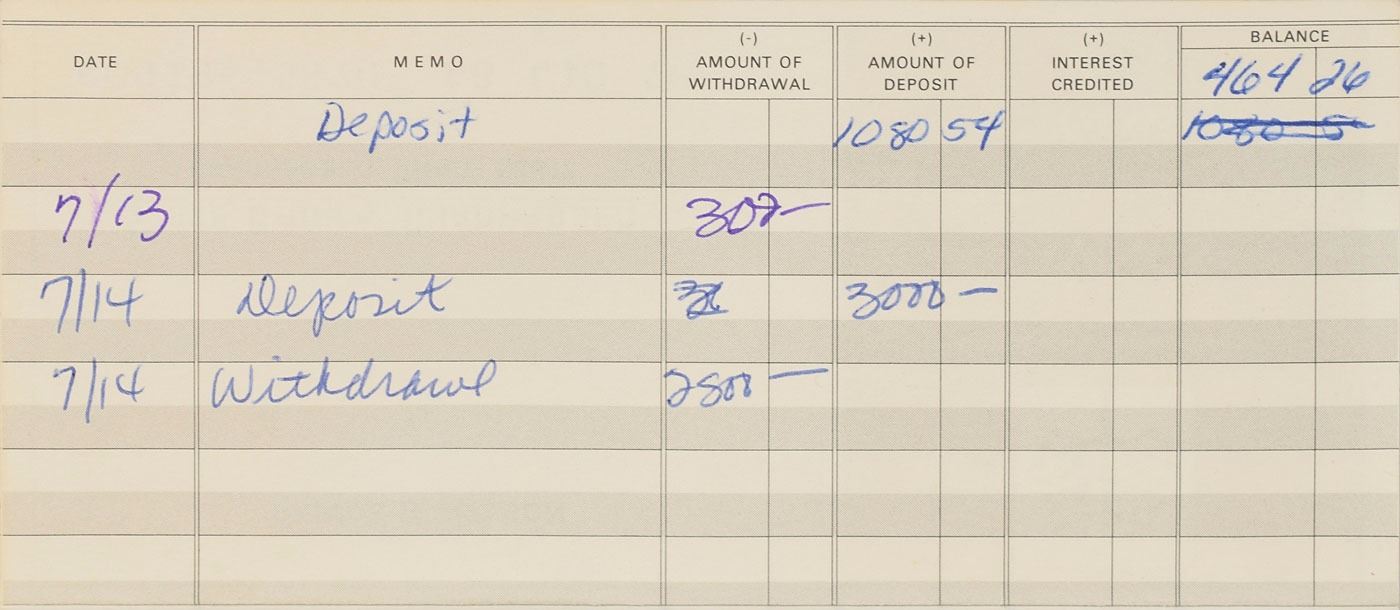 DATE MEMO (-) AMOUNT OF WITHDRAWAL (+) AMOUNT OF DEPOSIT (+) INTEREST CREDITED BALANCE
464 26
Deposit 1080 54 1080 5
7/13 300 —
7/14 Deposit 3000 —
7/14 Withdrawl 2800 —